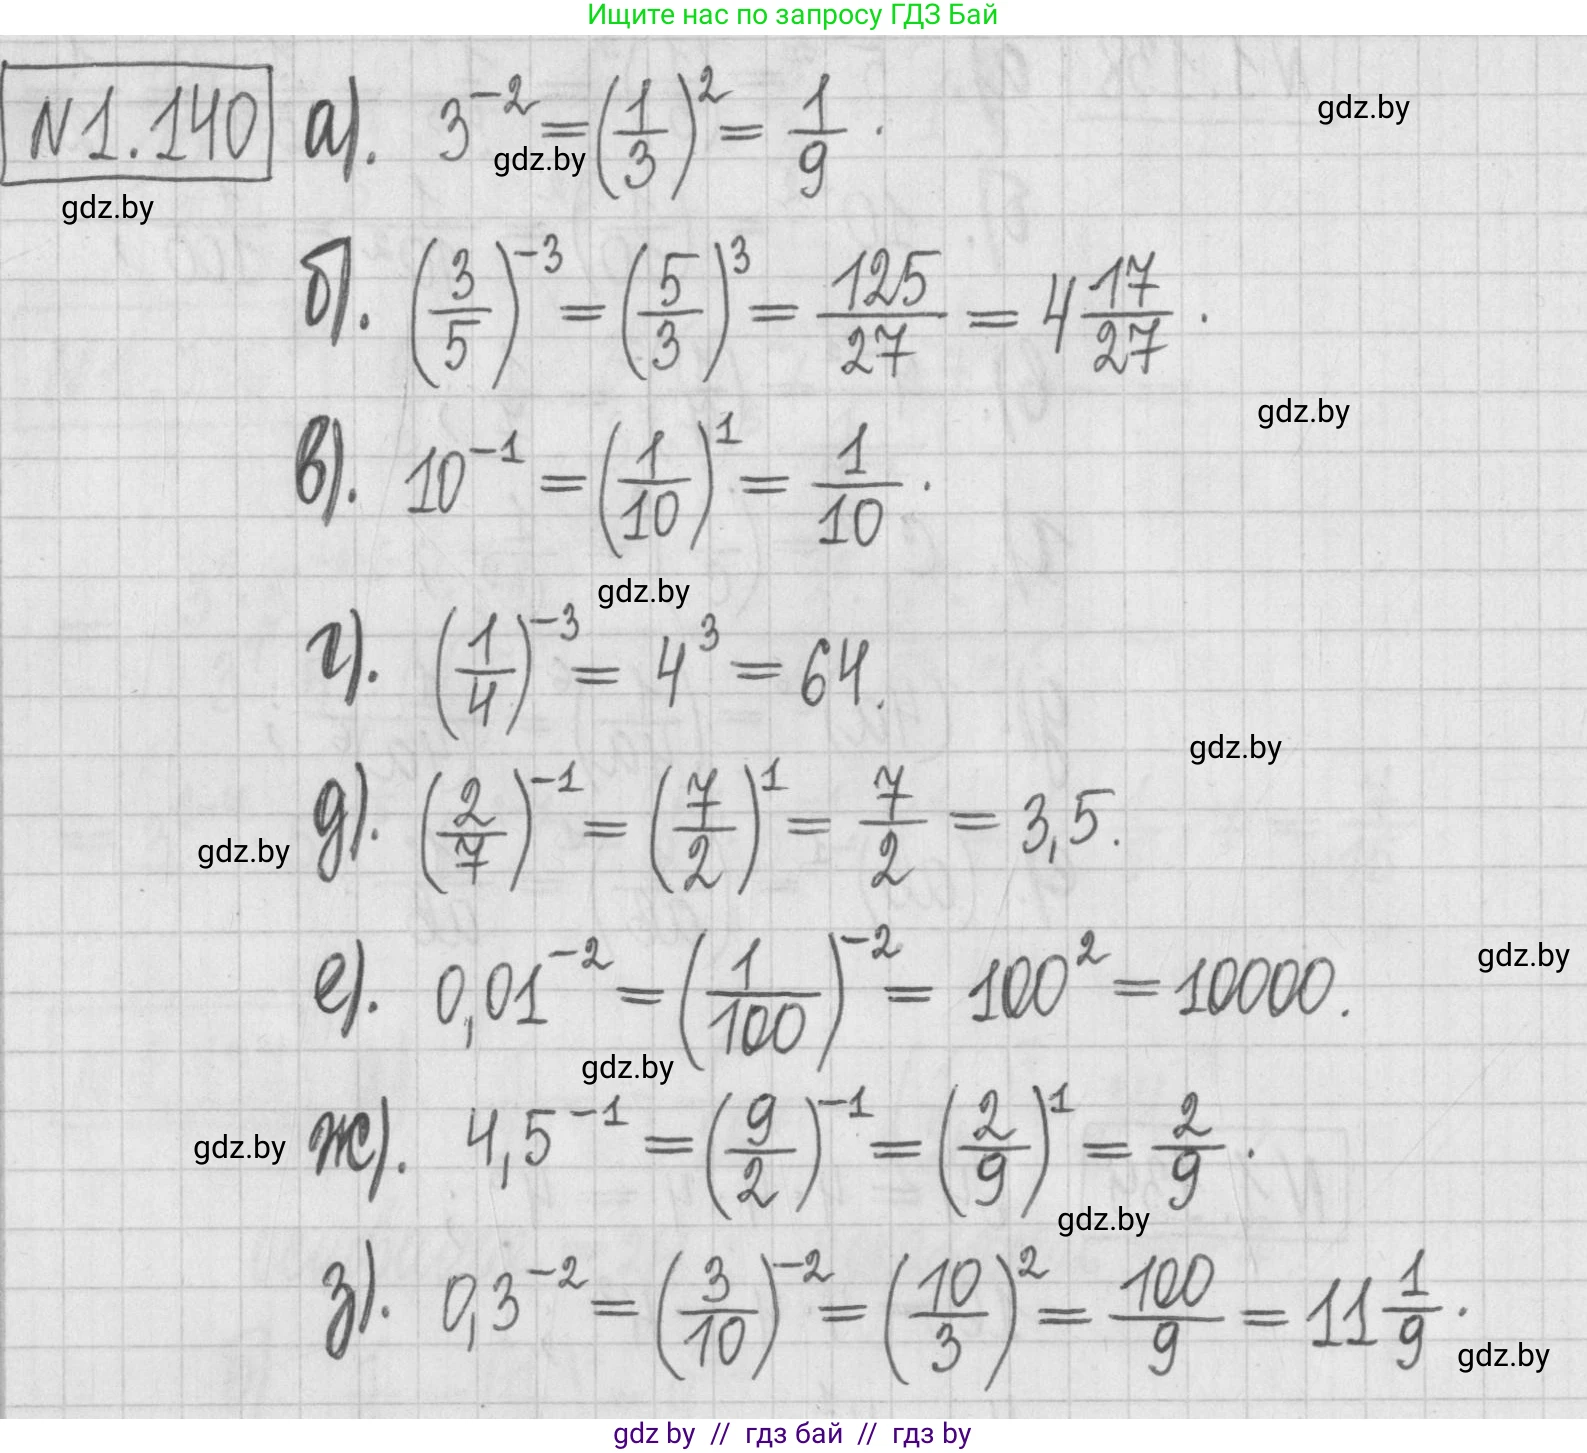 Ищите нас по запросу ГДЗ Бай
N1.140 а). 3^{-2} = (1/3)^2 = 1/9.
gdz.by
gdz.by
gdz.by
б). (3/5)^{-3} = (5/3)^3 = 125/27 = 4 17/27.
gdz.by
в). 10^{-1} = (1/10)^1 = 1/10.
gdz.by
г). (1/4)^{-3} = 4^3 = 64.
gdz.by
д). (2/7)^{-1} = (7/2)^1 = 7/2 = 3,5.
gdz.by
е). 0,01^{-2} = (1/100)^{-2} = 100^2 = 10000.
gdz.by
gdz.by
ж). 4,5^{-1} = (9/2)^{-1} = (2/9)^1 = 2/9.
gdz.by
gdz.by
з). 0,3^{-2} = (3/10)^{-2} = (10/3)^2 = 100/9 = 11 1/9.
gdz.by
gdz by // гдз бай // гдз by